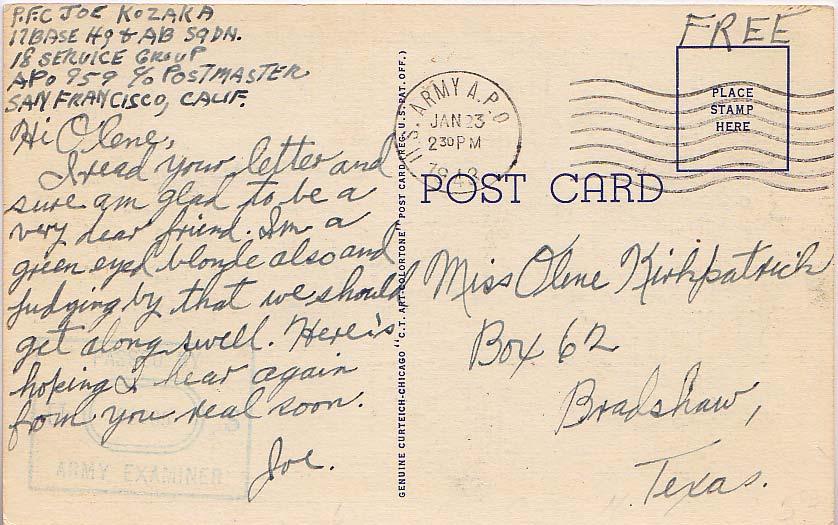 P.F.C JOE KOZAKA
17 BASE HQ & AB SQDN.
18 SERVICE GROUP
APO 959 C/O POSTMASTER
SAN FRANCISCO, CALIF.
Hi Olene,
I read your letter and
sure am glad to be a
very dear friend. I'm a
green eyed blonde also and
judging by that we should
get along swell. Here's
hoping I hear again
from you real soon.
Joe.
PASSED BY
ARMY EXAMINER
GENUINE CURTEICH-CHICAGO "C.T. ART-COLORTONE" POST CARD (REG. U.S. PAT. OFF.)
U.S. ARMY A.P.O.
JAN 23
2 30 PM
1943
FREE
PLACE
STAMP
HERE
POST CARD
Miss Olene Kirkpatrick
Box 62
Bradshaw,
Texas.